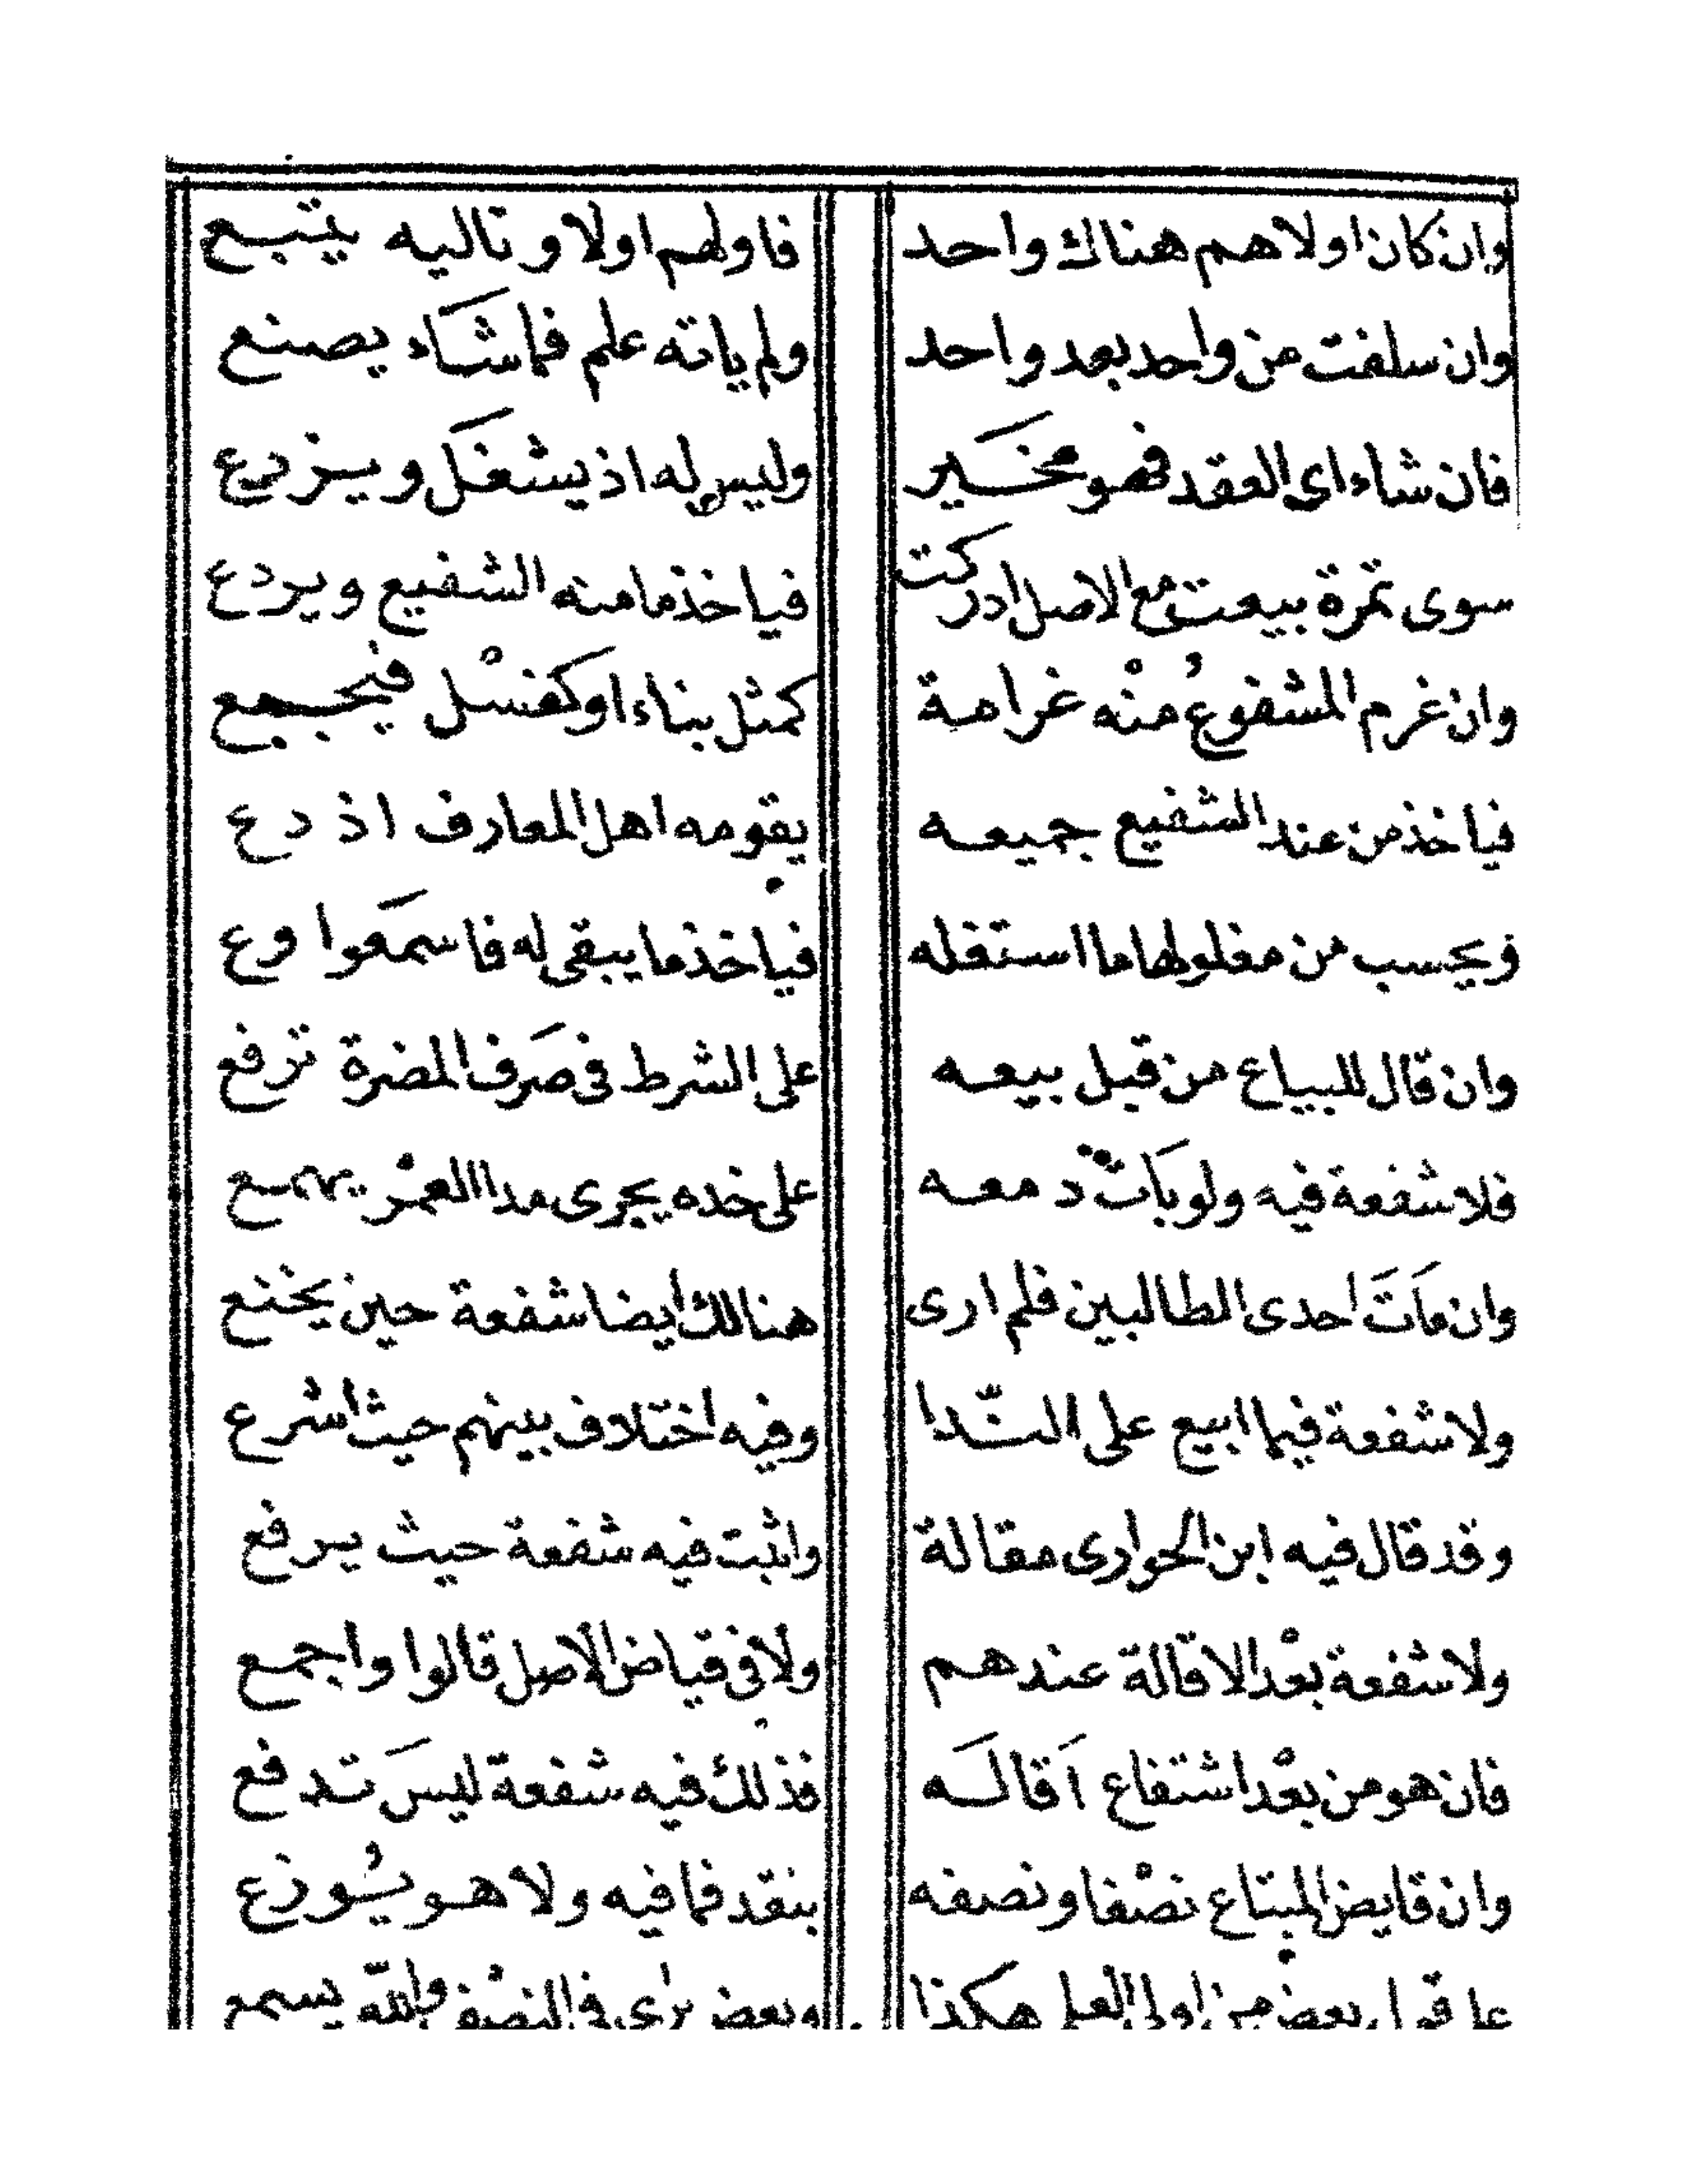 وان كان اولاهم هناك واحد فاولهم اولا وتاليه يتبع
وان سلفت من واحد بعد واحد ولم ياته علم فما شاء يصنع
فان شاء اى العقد فهو مخير وليس له اذ يشغل ويزدرع
سوى تمرة بيعت مع الاصل ادركت فياخذ مامنه الشفيع ويردع
وان غرم المشفوع منْه غرامة كمثل بناء او كفسْل فيجمع
فياخذ من عند الشفيع جميعه يقومه اهل المعارف اذ دع
ويحسب من مغلولها ما استغله فياخذ ما يبقى له فاسمَعوا وع
وان قال للبياع من قبل بيعه على الشرط فى صرَف المضرة ترفع
فلا شفعة فيه ولو بَات دمعه على خده يجرى مدا العمْر يهمع
وان مَاتَ احدى الطالبين فلم ارى هنالك ايضا شفعة حين يخنع
ولا شفعة فيما ابيع على النّدا وفيه اختلاف بينهم حيث اشرع
وقد قال فيه ابن الحوارى مقالة واثبت فيه شفعة حيث يرفع
ولا شفعة بعْد الاقالة عندهم ولا فى قياض الاصل قالوا واجمع
فان هو من بعْد اشتفاع اَقالَه فذلك فيه شفعة ليسَ تدفع
وان قايض المبتاع نصْفا ونصفه بنقد فما فيه ولا هو يُوزع
على قول بعض من اولى العلم هكذا وبعض يرى فى النصْف والله يسمع